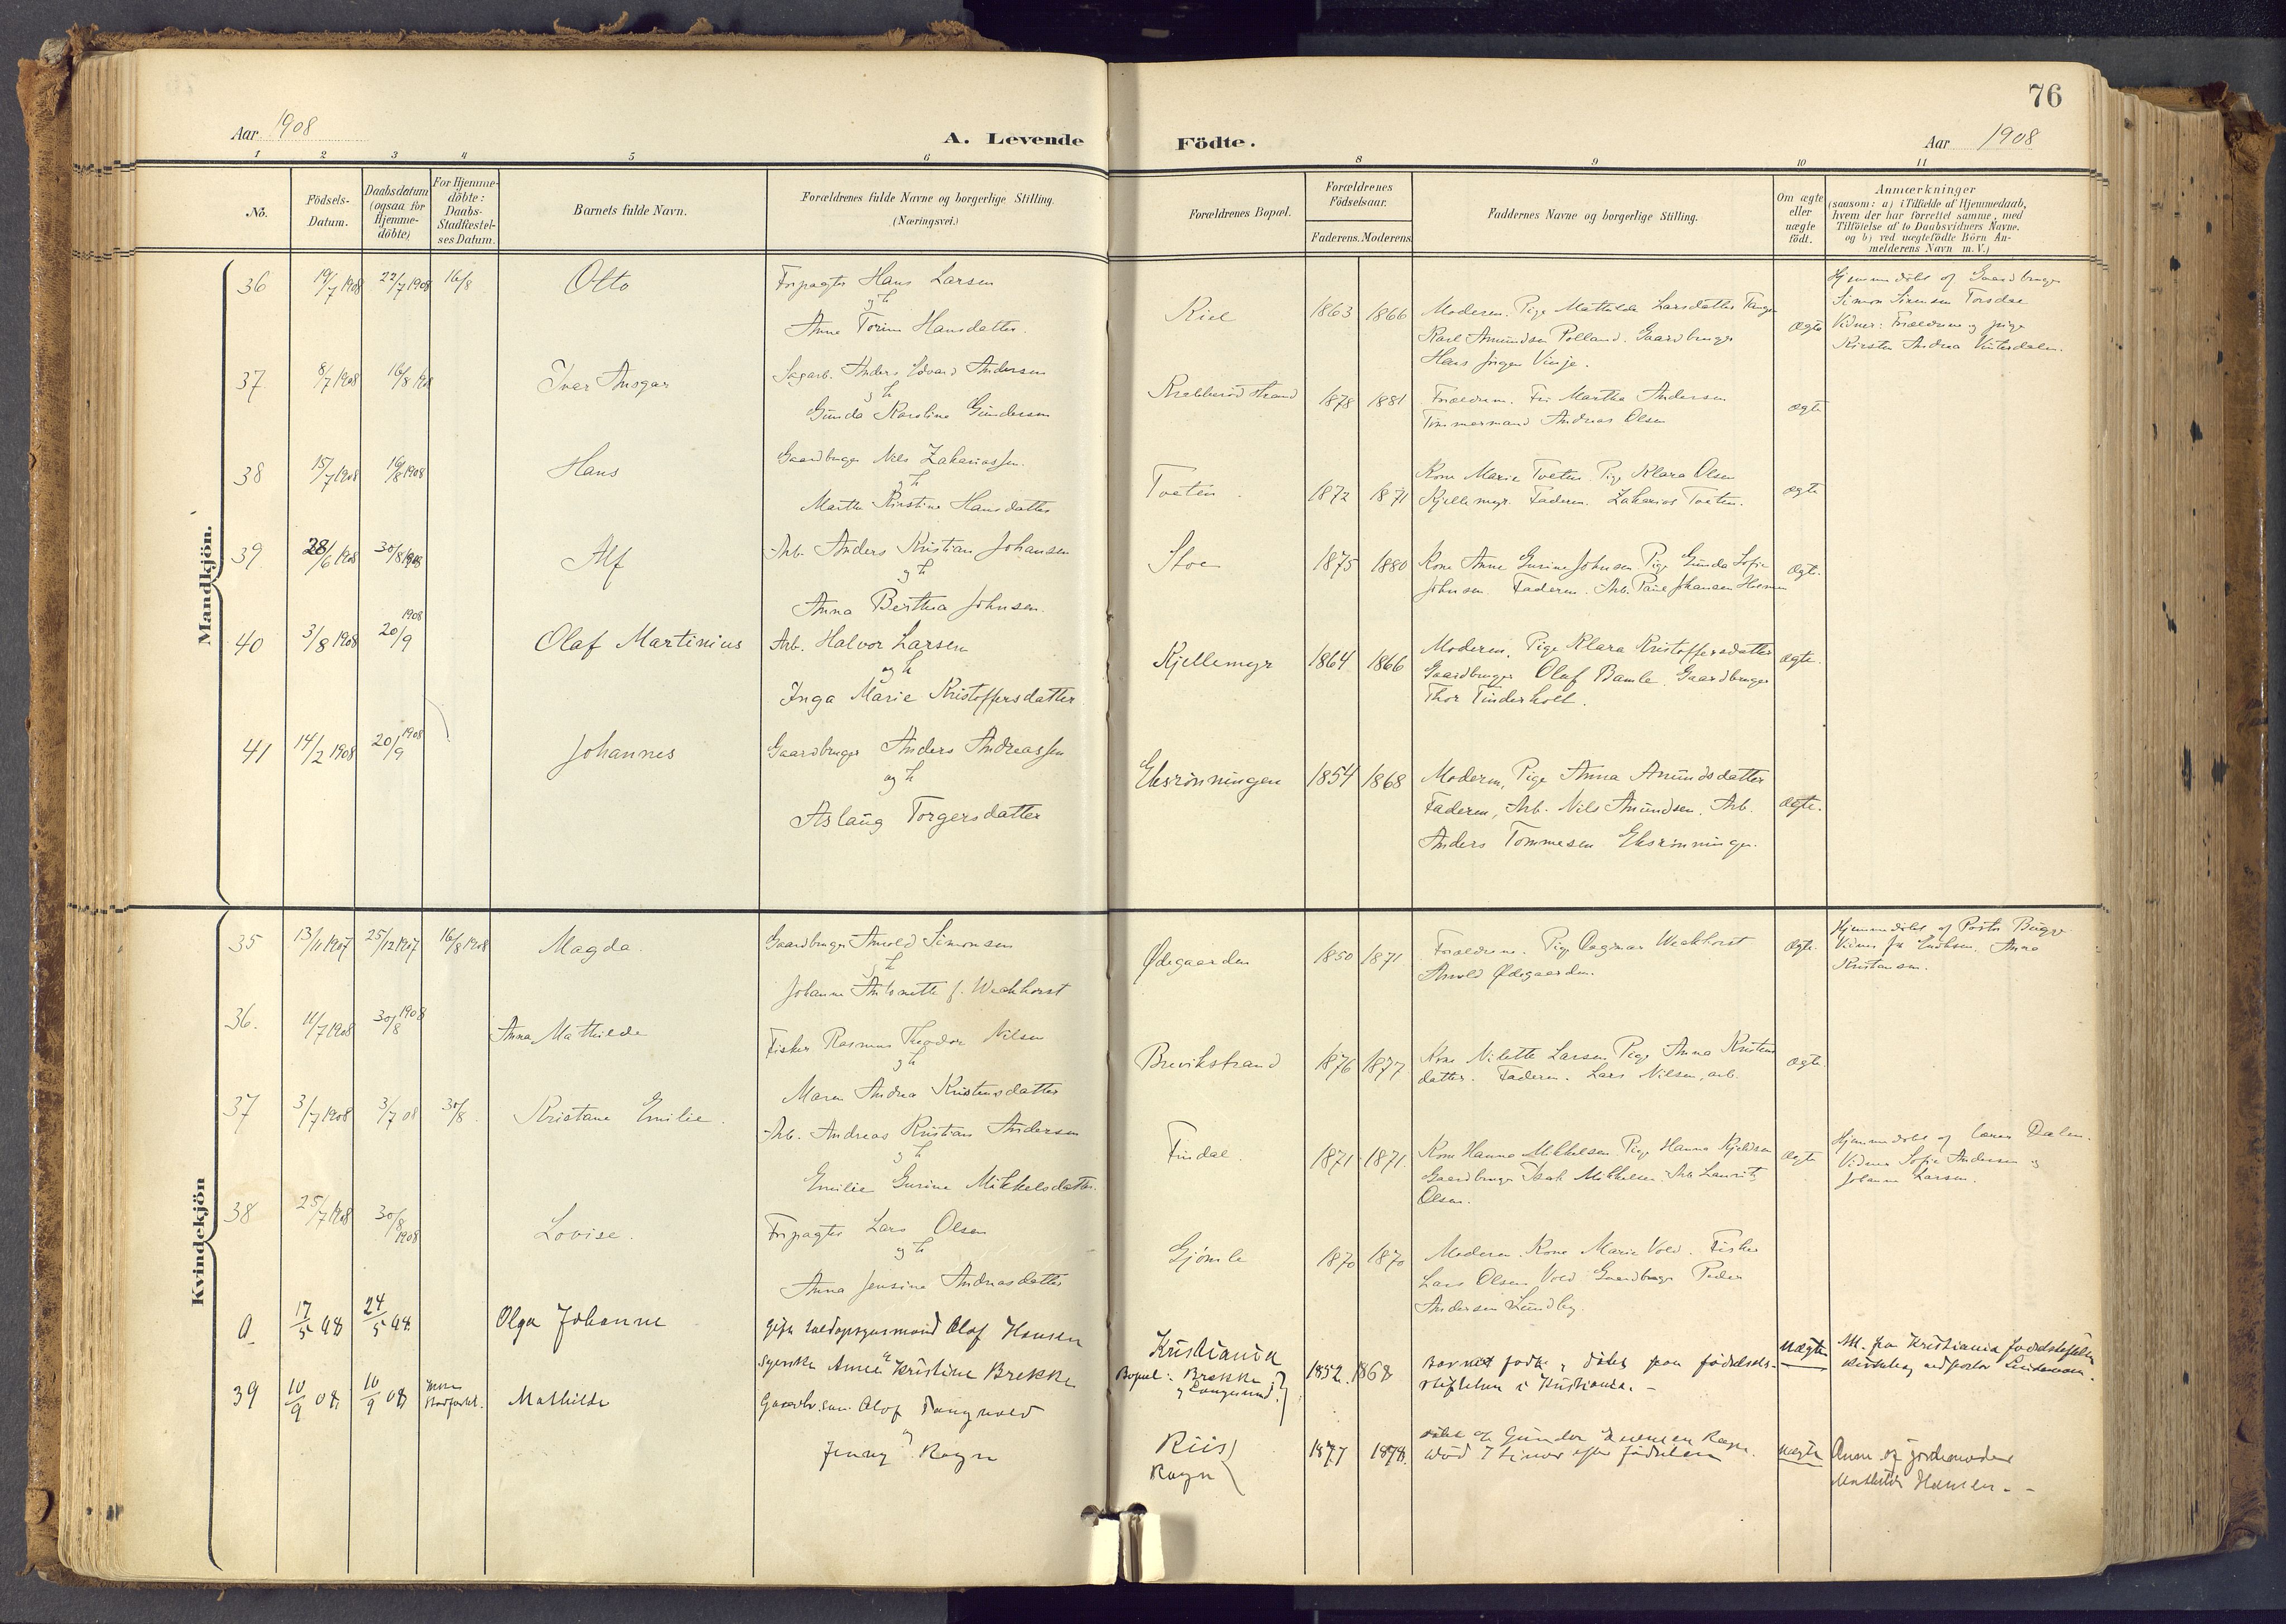 76
Aar 1908
A. Levende
Födte.
Aar 1908
1 2 3 4 5 6 8 9 10 11
No.
Födsels-
Datum.
Daabsdatum
(ogsaa for
Hjemme-
döbte)
For Hjemme-
döbte:
Daabs-
Stadfæstel-
ses Datum.
Barnets fulde Navn.
Forældrenes fulde Navne og borgerlige Stilling.
(Næringsvei.)
Forældrenes Bopæl.
Forældrenes
Födselsaar.
Faderens. Moderens
Faddernes Navne og borgerlige Stilling.
Om ægte
eller
uægte
födt.
Anmærkninger
(saasom: a) i Tilfælde af Hjemmedaab,
hvem der har forrettet samme, med
Tilföielse af to Daabsvidners Navne.
og b) ved uægtefödte Börn An-
melderens Navn m. V.)
Mandkjön.
36 19/7 1908 22/7 1908 16/8 Otto
Forpagter Hans Larsen
og h
Anne Torine Hansdatter.
Riel 1863 1866
Moderen. Pige Mathilda Larsdatter
Karl Amundsen Polland. Gaardbruger
Hans Jörgen Vinje.
ægte
Hjemmedöbt af Gaardbruger
Simon Simonsen Torsdal
Vidner: Forældrene og pige
Kirsten Andrea Vinterdalen.
37 8/7 1908 16/8 1908 Ivar Ansgar
Sagarb. Anders Edvard Andersen
og h
Gunda Karoline Gundersen
Krabberød strand 1878 1881
Forældrene. Fru Martha Andersen
Timmermand Andreas Olsen
ægte
38 15/7 1908 16/8 1908 Hans
Gaardbruger Nils Zakariassen.
og h
Marthe Kirstine Hansdatter
Tveten. 1872 1871
Kone Marie Tveten. Pige Klara Olsen
Kjellemyr. Faderen. Zakarias Tveten.
ægte
39 28/6 1908 30/8 1908 Alf
Arb. Anders Kristian Johansen
og h
Anna Berthea Johnsen.
Stoe 1875 1880
Kone Anne Gurine Johnsen. Pige Gunda Sofie
Johnsen. Faderen. Arb. Paul Johansen
ægte.
40 3/8 1908 20/9 1908 Olaf Martinius
Arb. Halvor Larsen
og h
Inga Marie Kristoffersdatter
Kjellemyr 1864 1866
Moderen. Pige Klara Kristoffersdatter
Gaardbruger Olaf Bamle. Gaardbruger
Thor Tinderholt.
ægte.
41 14/2 1908 20/9 1908 Johannes
Gaardbruger Anders Andreassen
og h
Aslaug Torgersdatter
Eksrönningen 1854 1868
Moderen, Pige Anna Amundsdatter
Faderen, Arb. Nils Amundsen. Arb.
Anders Tommesen Eksrönningen.
ægte.
Kvindekjön
35 13/11 1907 25/12 1907 16/8 1908 Magda.
Gaardbruger Arnold Simonsen
og h
Johanne Antonette f. Weckhorst
Ødegaarden 1850 1871
Forældrene. Pige Dagmar Weckhorst
Arnold Ødegaarden.
ægte.
Hjemmedöbt af Pastor Bugge
Vidner Anna
Kristensen.
36. 11/7 1908 30/8 1908 Anna Mathilde
Fisker Rasmus Theodor Nilsen
og h
Maren Andrea Kristensdatter
Brevikstrand 1876 1877
Kone Nilette Larsen. Pige Anna Kristens
datter. Faderen. Lars Nilsen, arb.
ægte.
37 3/7 1908 3/7 08 30/8. Kristane Emilie.
Arb. Andreas Kristian Andersen
og h
Emilie Gurine Mikkelsdatter.
Findal. 1871 1871.
Kone Hanna Mikkelsen. Pige Hanna Kjeldsen
Gaardbruger Isak Mikkelsen. Arb. Laurits
Olsen.
ægte
Hjemmedöbt af lærer Dalen.
Vidner Sofie Andersen og
Johanne Larsen.
38 25/7 1908 30/8 1908 Lovise.
Forpagter Lars Olsen
og h
Anna Jensine Andreasdatter
Gjömle 1870 1870
Moderen. Kone Marie Vold. Fisker
Lars Olsen Vold. Gaardbruger Peder
Andersen Lundby.
a 17/5 98 24/5 98. Olga Johanne
gift Olaf Hansen
Anne Kristine Brekke
Kristiania
Bopæl: Brekke
og Langesund.
1852. 1868
Barnet födt og döbt paa födsels-
stiftelsen i Kristiania. –
uægte
Att. fra Kristiania fødselsstiftelse
39 10/9 08 10/9 08 Mathilde
Gaardbr. søn. Olaf Tangvald
og
Jenny Rogn
Riis
Rogn
1877 1878.
döbt af Gunder Rogn.
död 7 timer efter födselen
uægte
Anm. af jordemoder
Mathilde Hansen. –